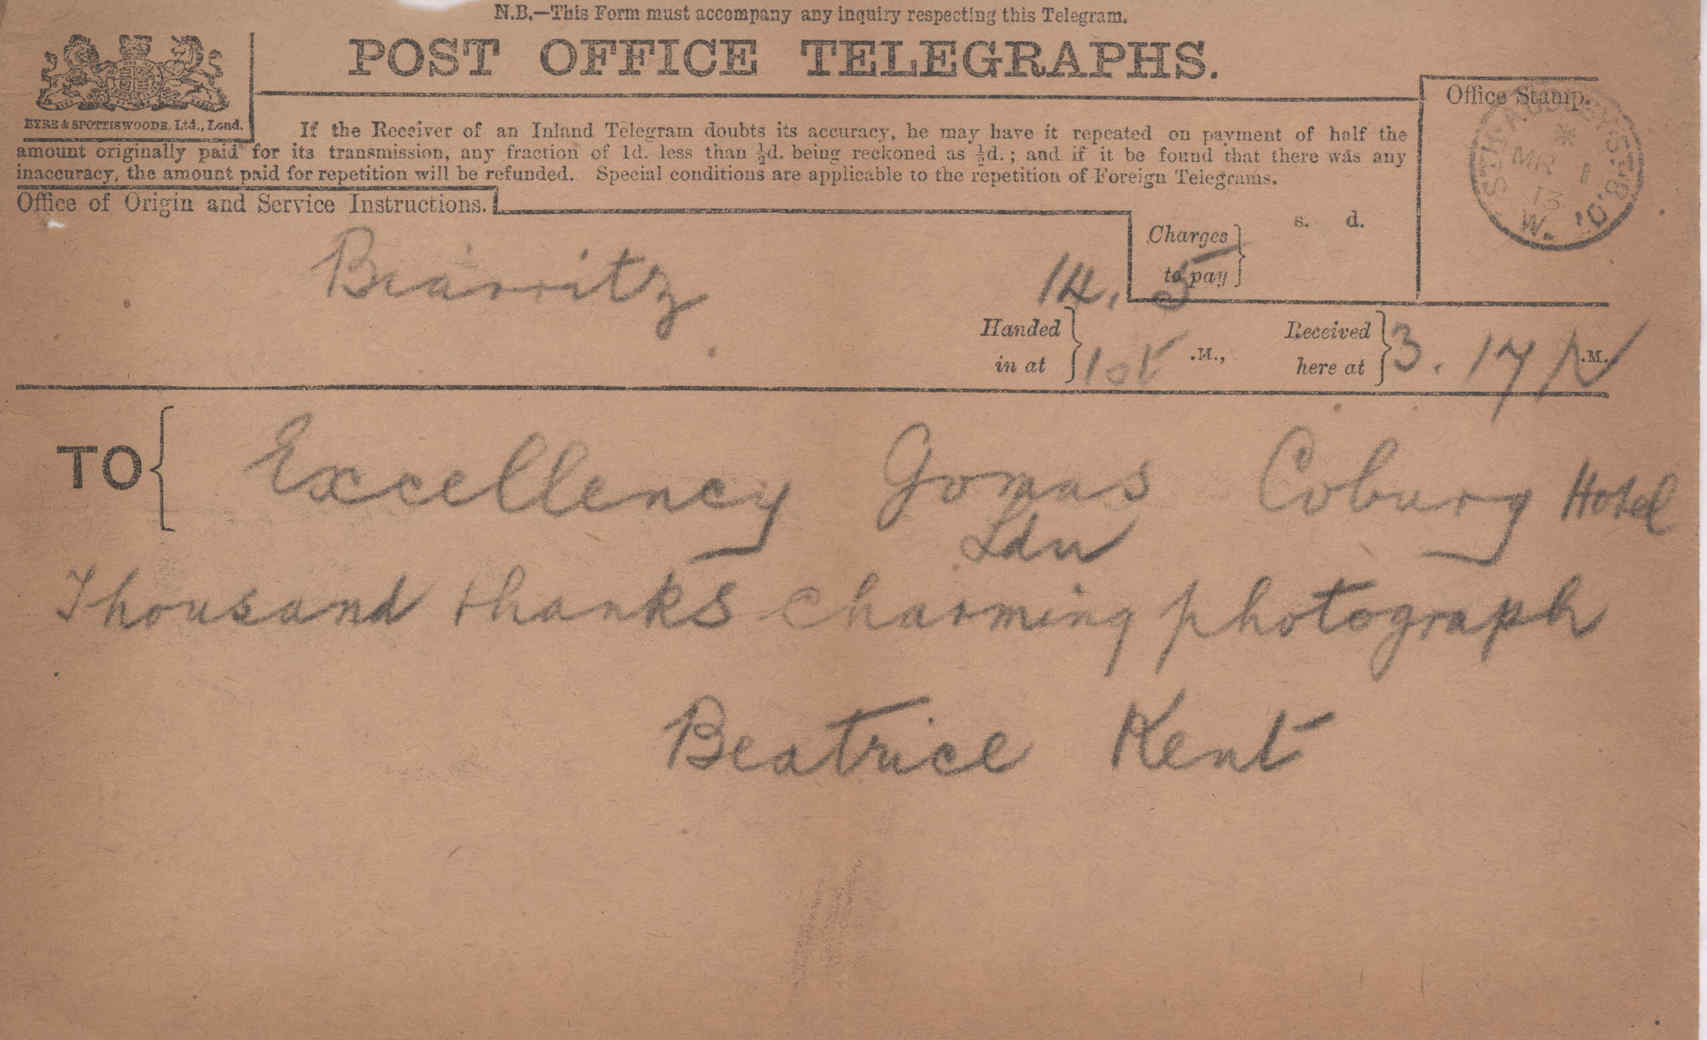 N.B.—This Form must accompany any inquiry respecting this Telegram.
POST OFFICE TELEGRAPHS.
EYRE & SPOTTISWOODE, Ltd., Lond.
Office Stamp.
If the Receiver of an Inland Telegram doubts its accuracy, he may have it repeated on payment of half the
amount originally paid for its transmission, any fraction of 1d. less than ½d. being reckoned as ½d.; and if it be found that there was any
inaccuracy, the amount paid for repetition will be refunded. Special conditions are applicable to the repetition of Foreign Telegrams.
MR 1
13
W.
Office of Origin and Service Instructions.
Charges to pay } s. d.
Biarritz 14. 5
Handed in at } .M., Received here at } 3.17 .M.
TO { Excellency Gomas Coburg Hotel
Ldn
Thousand thanks charming photograph
Beatrice Kent